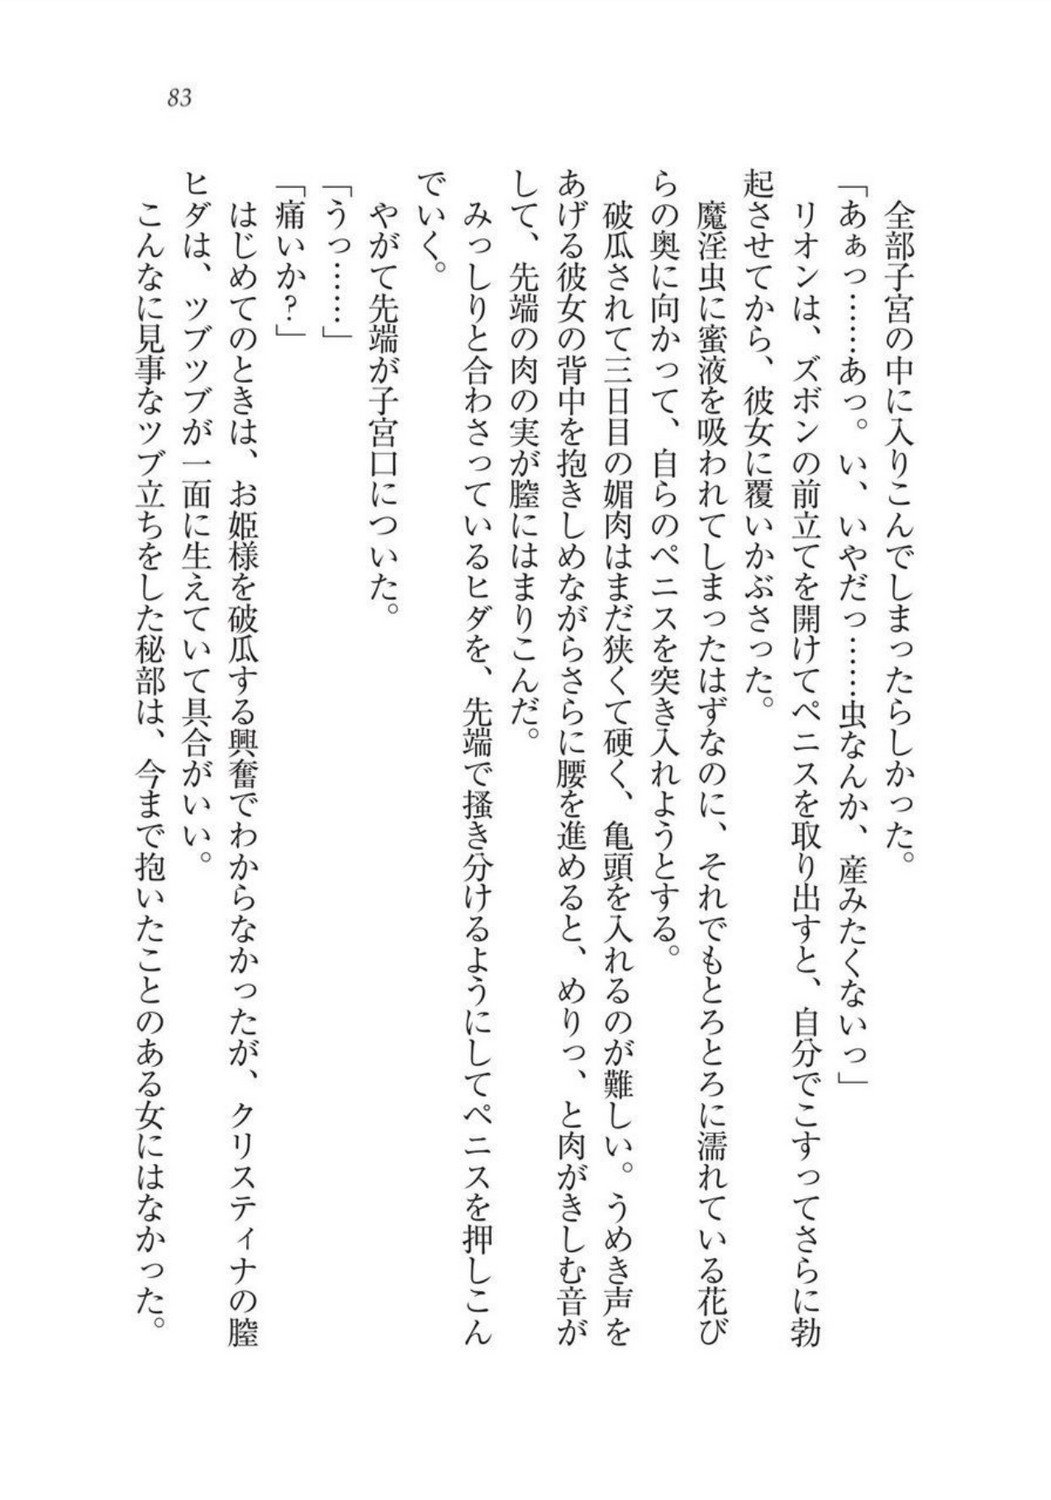 83
全部子宮の中に入りこんでしまったらしかった。
「あぁっ……あっ。い、いやだっ……虫なんか、産みたくないっ」
リオンは、ズボンの前立てを開けてペニスを取り出すと、自分でこすってさらに勃
起させてから、彼女に覆いかぶさった。
魔淫虫に蜜液を吸われてしまったはずなのに、それでもとろとろに濡れている花び
らの奥に向かって、自らのペニスを突き入れようとする。
破瓜されて三日目の媚肉はまだ狭くて硬く、亀頭を入れるのが難しい。うめき声を
あげる彼女の背中を抱きしめながらさらに腰を進めると、めりっ、と肉がきしむ音が
して、先端の肉の実が膣にはまりこんだ。
みっしりと合わさっているヒダを、先端で掻き分けるようにしてペニスを押しこん
でいく。
やがて先端が子宮口についた。
「うっ……」
「痛いか？」
はじめてのときは、お姫様を破瓜する興奮でわからなかったが、クリスティナの膣
ヒダは、ツブツブが一面に生えていて具合がいい。
こんなに見事なツブ立ちをした秘部は、今まで抱いたことのある女にはなかった。